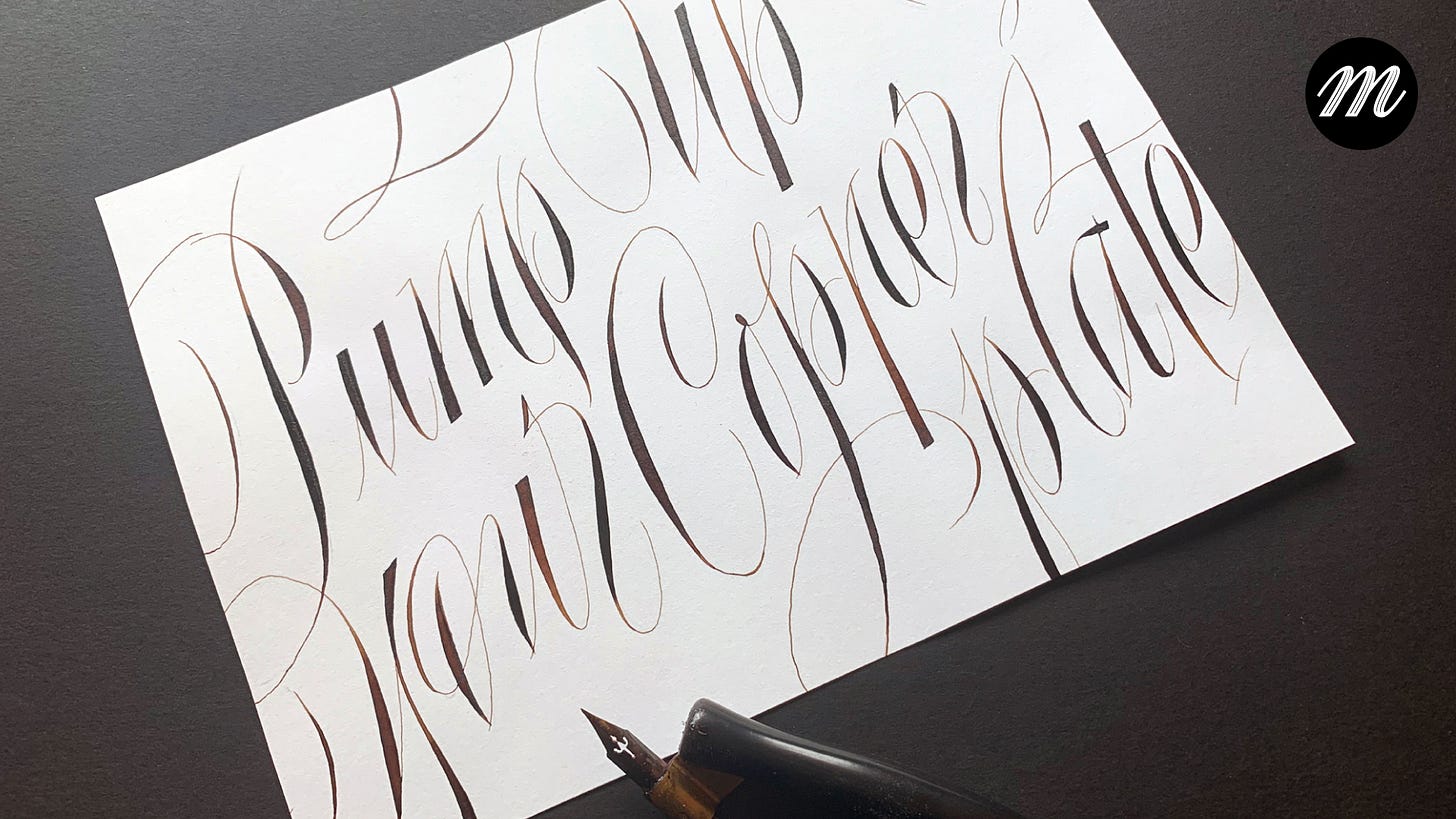 Pump Up
Your Copper
plate
m